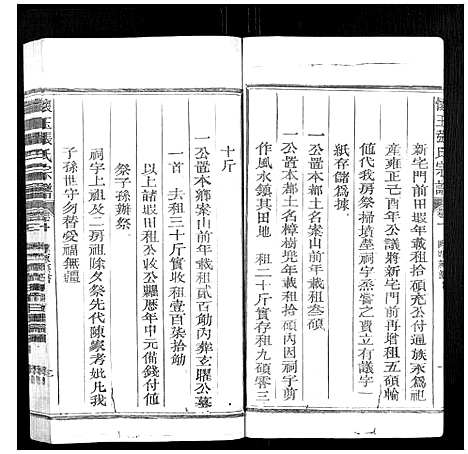 懷玉張氏宗譜
新宅門前田塅年載租拾碩充公付通族永爲祀
產雍正己酉年公議將新宅門前再增租五碩輪
値代我房祭掃墳塋祠宇烝嘗之費立有議字一
紙存儲爲據
一公置本鄉土名案山前年載租叁碩
一公置本鄉土名樟樹兠年載租拾碩內因祠宇剪
作風水鎮其田地 租二十斤實存租九碩零三
十斤
一公置本鄉案山前年載租貳百觔內葬玄曜公墓
一首 去租三十斤實收租壹百柒拾觔
以上諸塅田租公收公糶歷年中元備錢付值
祭子孫辦祭
祠宇上祖及二房祖除夕祭先代陳家考妣凡我
子孫世守勿替愛福無疆
懷玉張氏宗譜